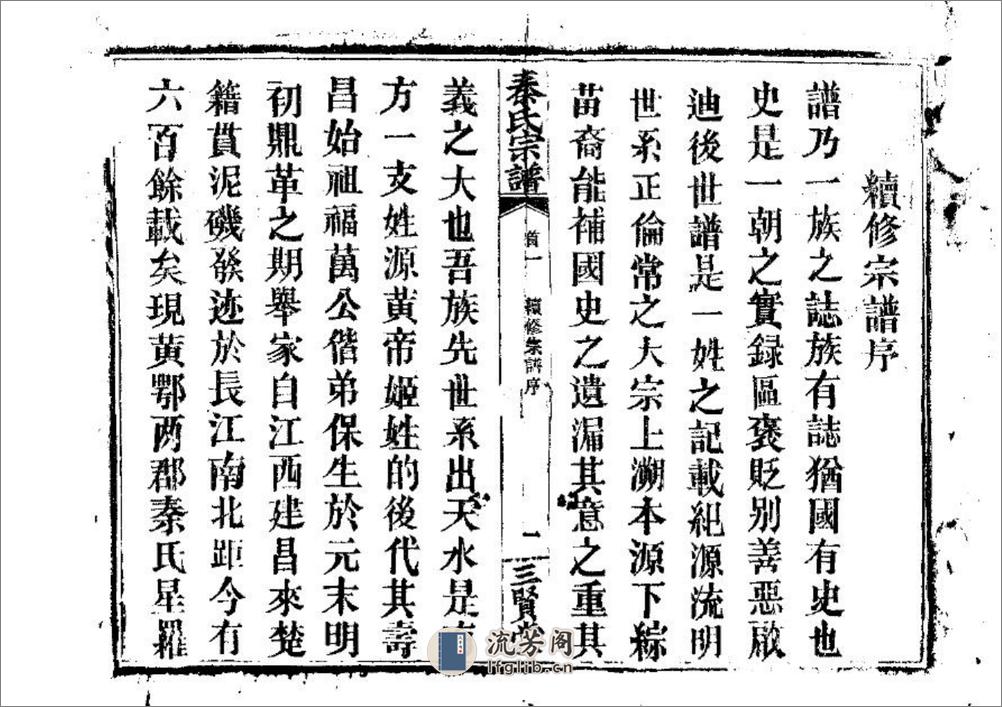 續修宗譜序
譜乃一族之誌族有誌猶國有史也
史是一朝之實録區褒貶別善惡啟
迪後世譜是一姓之記載紀源流明
世系正倫常之大宗上溯本源下綜
苗裔能補國史之遺漏其意之重其
秦氏宗譜
首一
續修宗譜序
一
三賢堂
義之大也吾族先世系出天水是
方一支姓源黄帝姬姓的後代其壽
昌始祖福萬公偕弟保生於元末明
初鼎革之期舉家自江西建昌來楚
籍貫泥磯發迹於長江南北距今有
六百餘載矣現黄鄂两郡秦氏星羅
流芳阁
lfglib.cn